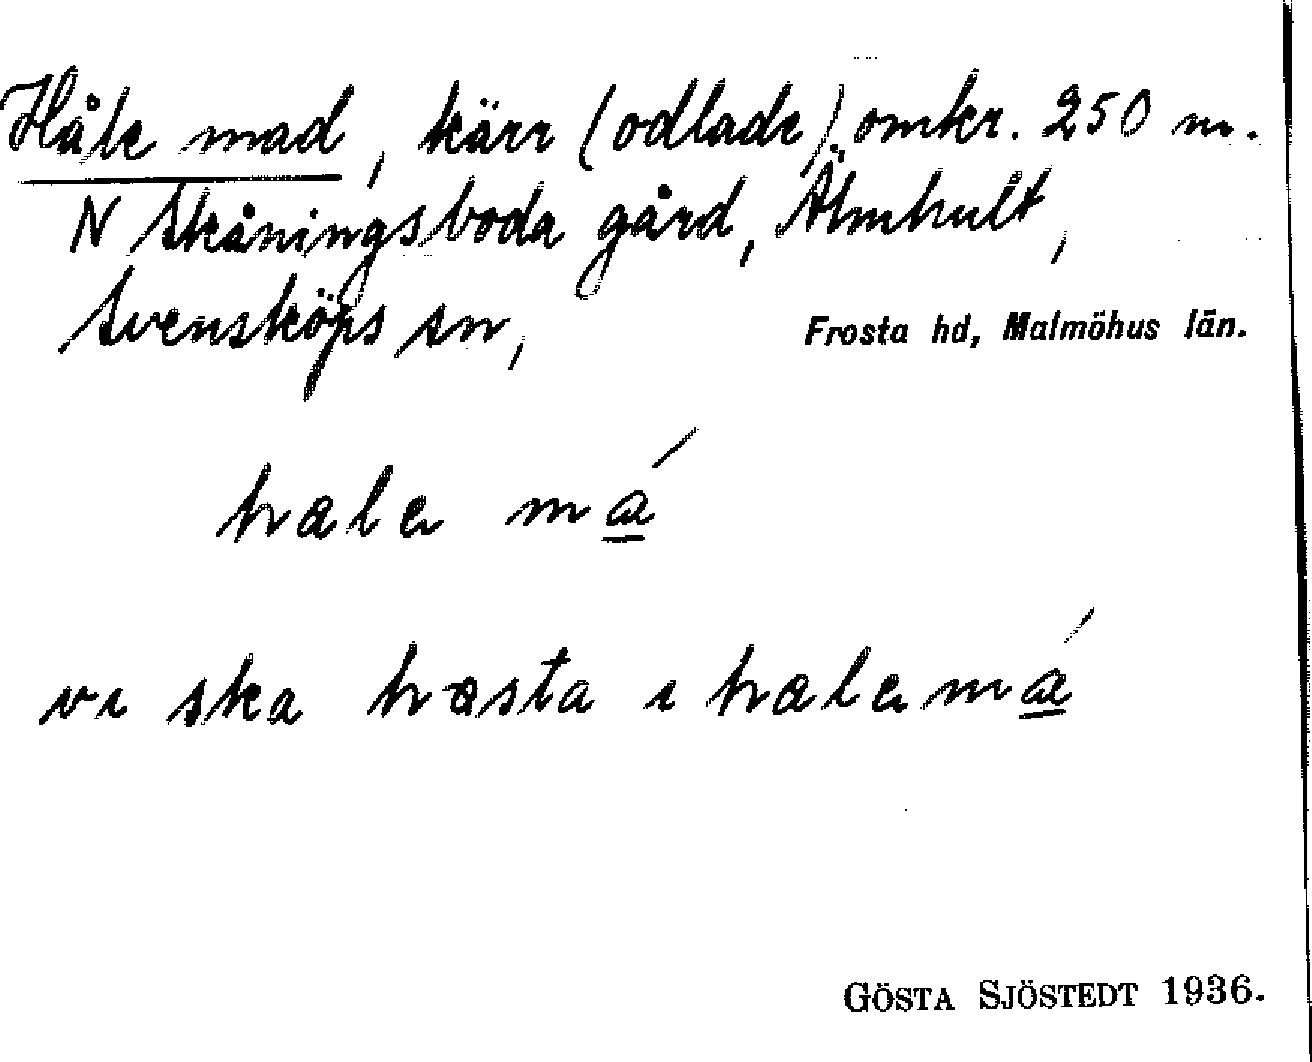 Håle mad, kärr (odlade) omkr. 250 m.
N Skåningsboda gård, Älmhult,
Svensköps sn, Frosta hd, Malmöhus län.
halɐ mɑ́
vı ska hɑsta ı halɐmɑ́
GÖSTA SJÖSTEDT 1936.